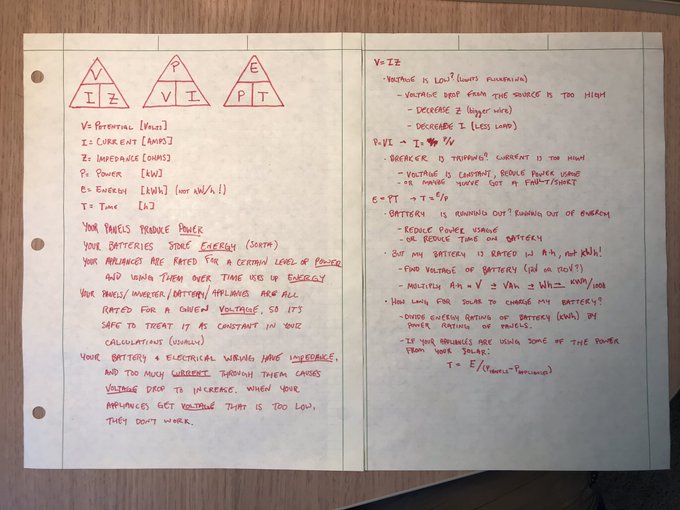 V
I Z
P
V I
E
P T
V = POTENTIAL [VOLTS]
I = CURRENT [AMPS]
Z = IMPEDANCE [OHMS]
P = POWER [kW]
E = ENERGY [kWh] (NOT kW/h!)
T = TIME [h]
YOUR PANELS PRODUCE POWER
YOUR BATTERIES STORE ENERGY (SORTA)
YOUR APPLIANCES ARE RATED FOR A CERTAIN LEVEL OF POWER
AND USING THEM OVER TIME USES UP ENERGY
YOUR PANELS/INVERTER/BATTERY/APPLIANCES ARE ALL
RATED FOR A GIVEN VOLTAGE, SO IT'S
SAFE TO TREAT IT AS CONSTANT IN YOUR
CALCULATIONS (USUALLY)
YOUR BATTERY & ELECTRICAL WIRING HAVE IMPEDANCE,
AND TOO MUCH CURRENT THROUGH THEM CAUSES
VOLTAGE DROP TO INCREASE. WHEN YOUR
APPLIANCES GET VOLTAGE THAT IS TOO LOW,
THEY DON'T WORK.
V = IZ
· VOLTAGE IS LOW? (LIGHTS FLICKERING)
- VOLTAGE DROP FROM THE SOURCE IS TOO HIGH
- DECREASE Z (bigger wire)
- DECREASE I [LESS LOAD)
P = VI → I = P/V
· BREAKER IS TRIPPING? CURRENT IS TOO HIGH
- VOLTAGE IS CONSTANT, REDUCE POWER USAGE
- OR MAYBE YOU'VE GOT A FAULT/SHORT
E = PT → T = E/P
· BATTERY IS RUNNING OUT? RUNNING OUT OF ENERGY
- REDUCE POWER USAGE
- OR REDUCE TIME ON BATTERY
· BUT MY BATTERY IS RATED IN A·h, NOT kWh!
- FIND VOLTAGE OF BATTERY (12V OR 120V?)
- MULTIPLY A·h × V → VAh → Wh → kWh/1000
· HOW LONG FOR SOLAR TO CHARGE MY BATTERY?
- DIVIDE ENERGY RATING OF BATTERY (kWh) BY
POWER RATING OF PANELS.
- IF YOUR APPLIANCES ARE USING SOME OF THE POWER
FROM YOUR SOLAR:
T = E/(Ppanels - Pappliances)